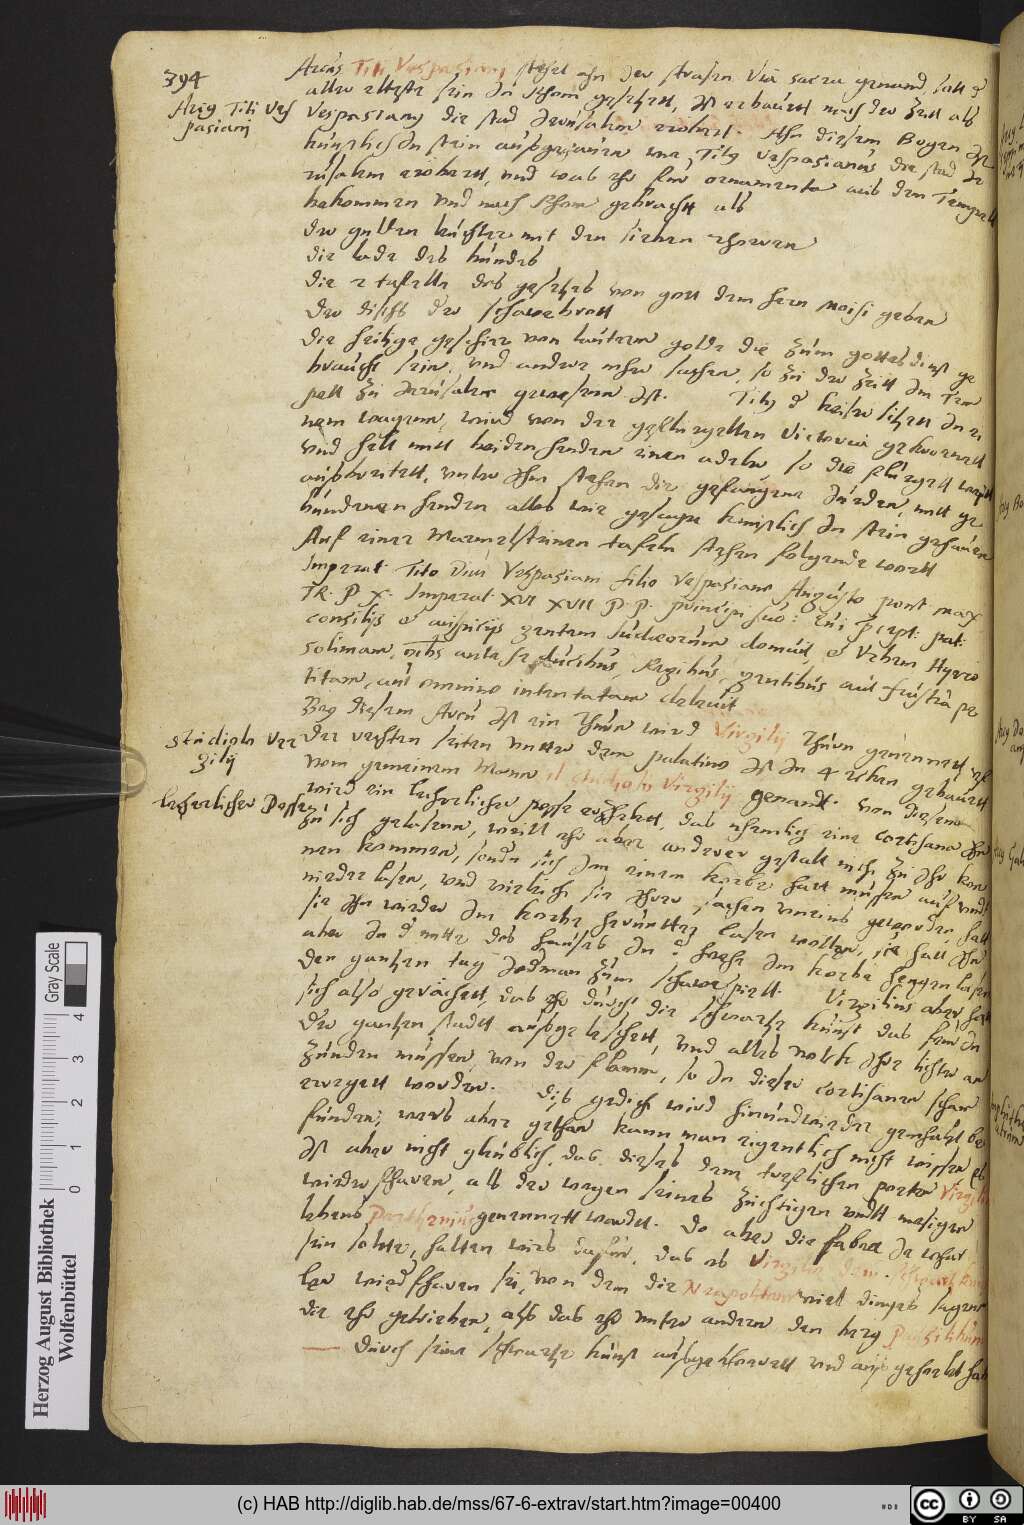 394
Arcus Titi Vespasiani stehet ahn der strasen Via sacra genand, soll d
Arcus Titi Ves
pasiani
aller elteste sein In Rhom gesehett, Ist erbauett nach der Zeitt als
Vespasianus die stad Jerusalem erobert. Ahn diesem Bogen Ist
kunstlich In stein ausgehauen wie Titus Vespasianus die stad Je
rusalem erobertt, und was ehr fur ornamenta aus dem Tempell
bekommen und nach Rhom gebracht als
der gulden leuchter mit den sieben rhoren
die lade des bundes
die 2 tafelln des gesetzes von gott dem hern Moisi geben
der disch der schawbrott
die heilige geschirr von lauterm golde die Zum gottesdinst ge
braucht sein, und andere mher sachen, so Zu der Zeitt Im Tem
pell Zu Jerusalem gewesenn Ist. Titus d keiser sitzett In ei
nem wagenn, wird von der geflugelten Victoria gekronett
und helt mitt beiden henden einen adeler, so die flugell
ausbreitett, unter Ihm stehen die gefangene Juden, mitt ge
bundenen henden alles wie gesagt kunstlich In stein gehauen
Auf einer Marmelsteinen tafeln stehen folgende wortt
Imperat. Tito Divi Vespasiani filio Vespasiano Augusto pont max
TR. P X. Imperat. XVI XVII P. P. principi suo: qui pcept. pat.
consilijs et auspicijs gentem Judaeorum domuit, et Urbem Hyero
solimam, omibs ante se ducibus, Regibus, gentibus aut frustra pe
titam, aut omnino intentatam delevit
Bey diesem Arcu Ist ein Thurn wird Virgilij Thurn genennett
studiolo Ver
gilij
der rechten seiten unter dem palatino Ist In 4 Ecken gebauett
vom gemeinem Manne il studiolo Virgilij genandt. von diesem
lecherlicher Posse
wird ein lecherlicher posse erzehlett, das nhemlich eine cortisana Ihn
Zu sich gelasenn, weill ehr aber anderer gestalt nicht Zu Ihr kom
nen kommen, sondern sich Inn einem korbe hatt mussen auf undt
nieder lasen, und wie sie Ihrer sachen
sie Ihn wieder Im korbe herunter lasen wollen, sie hatt Ihn
aber In d mitte des hauses In d hoche Im korbe hengen lasen
den gantzen tag Jedman Zum schawspiell. Virgilius aber hatt
sich also gerochett, das ehr durch die schwartze kunst das feur In
der gantzen stadtt ausgeleschett, und alles volck Ihre lichter an
Zunden mussen, von der flamm, so In dieser cortisanen scham
erregett worden. Dis gedicht wird hin und wieder gemahlt be
funden, wers aber gethan kann man eigentlich nicht wissen es
Ist aber nicht gleublich, das dieses dem trefflichen poeten Virgilio
wiederfharen, als der wegen seines Zuchtigen undtt mesigen
lebens Parthenius genennett wordt. Do aber die fabell Je whar
sein solte, halten wirs dafur, das es Virgilio dem
ler wiederfharen sei, von dem die Neapolitaner viell dinges sagen
die ehr getrieben, als das ehr unter andern den berg Pausilipum
durch seine schwartze kunst ausgehawett und ausgeholet hab
Herzog August Bibliothek
Wolfenbüttel
Gray Scale
0 1 2 3 4
(c) HAB http://diglib.hab.de/mss/67-6-extrav/start.htm?image=00400
HAB
cc BY SA